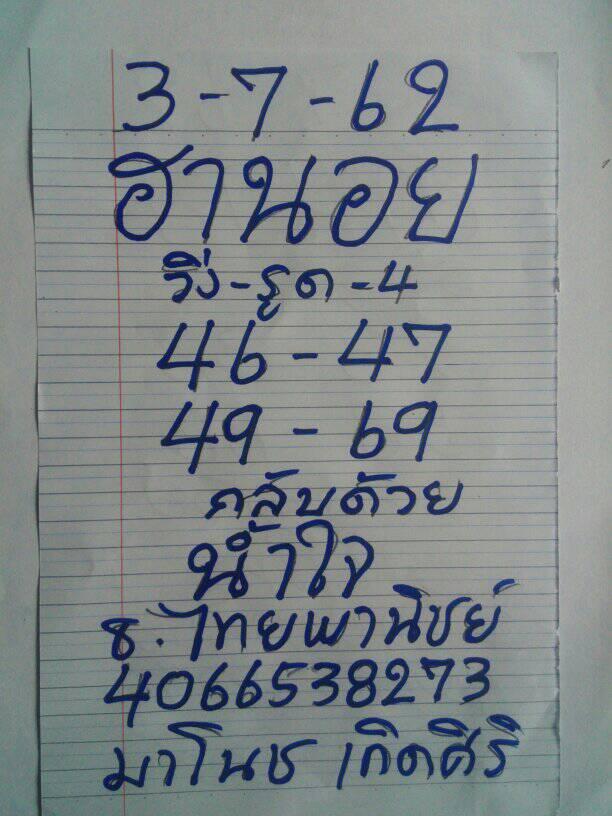 3-7-62
ฮานอย
วิ่ง-รูด-4
46-47
49-69
กลับด้วย
น้ำใจ
ธ.ไทยพานิชย์
4066538273
มาโนช เกิดศิริ